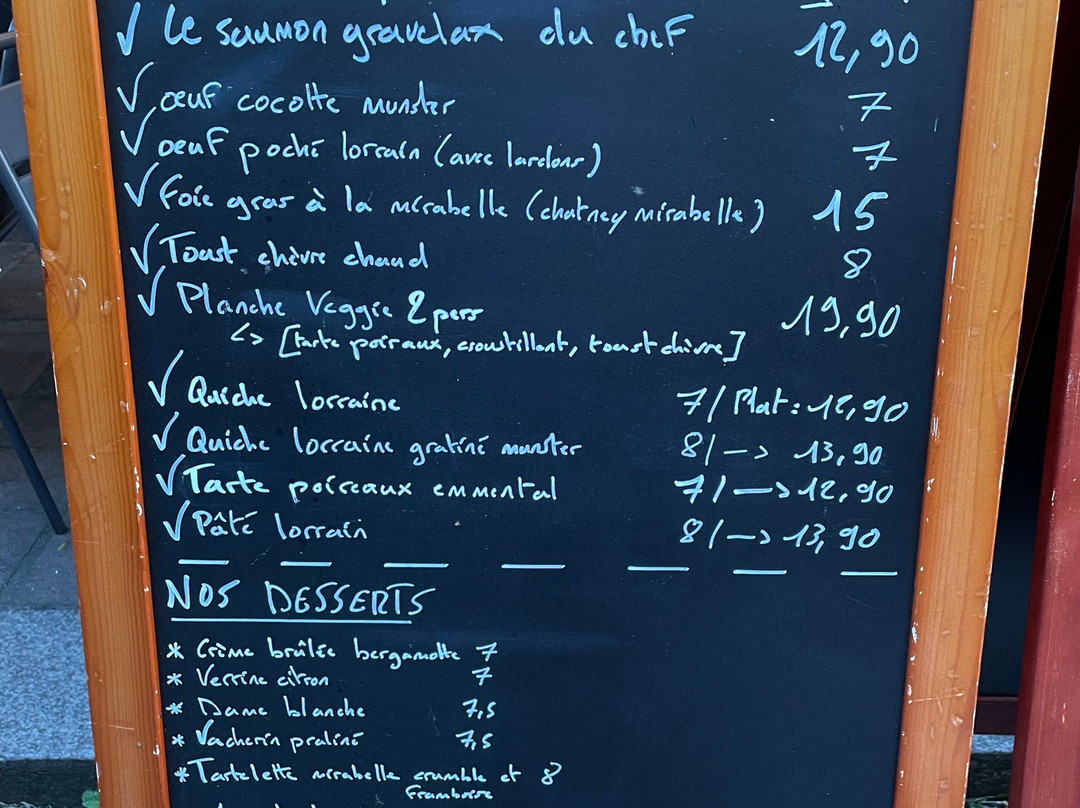 ✓ Le saumon gravelax du chef 12,90
✓ œuf cocotte munster 7
✓ oeuf poché lorrain (avec lardons) 7
✓ Foie gras à la mirabelle (chutney mirabelle) 15
✓ Toast chèvre chaud 8
✓ Planche Veggie 2 pers 19,90
↳ [tarte poiraux, croustillant, toast chèvre]
✓ Quiche lorraine 7 / Plat : 12,90
✓ Quiche lorraine gratiné munster 8 / -> 13,90
✓ Tarte poireaux emmental 7 / -> 12,90
✓ Pâté lorrain 8 / -> 13,90
NOS DESSERTS
* Crème brûlée bergamotte 7
* Verrine citron 7
* Dame blanche 7,5
* Vacherin praliné 7,5
* Tartelette mirabelle crumble et 8
framboise